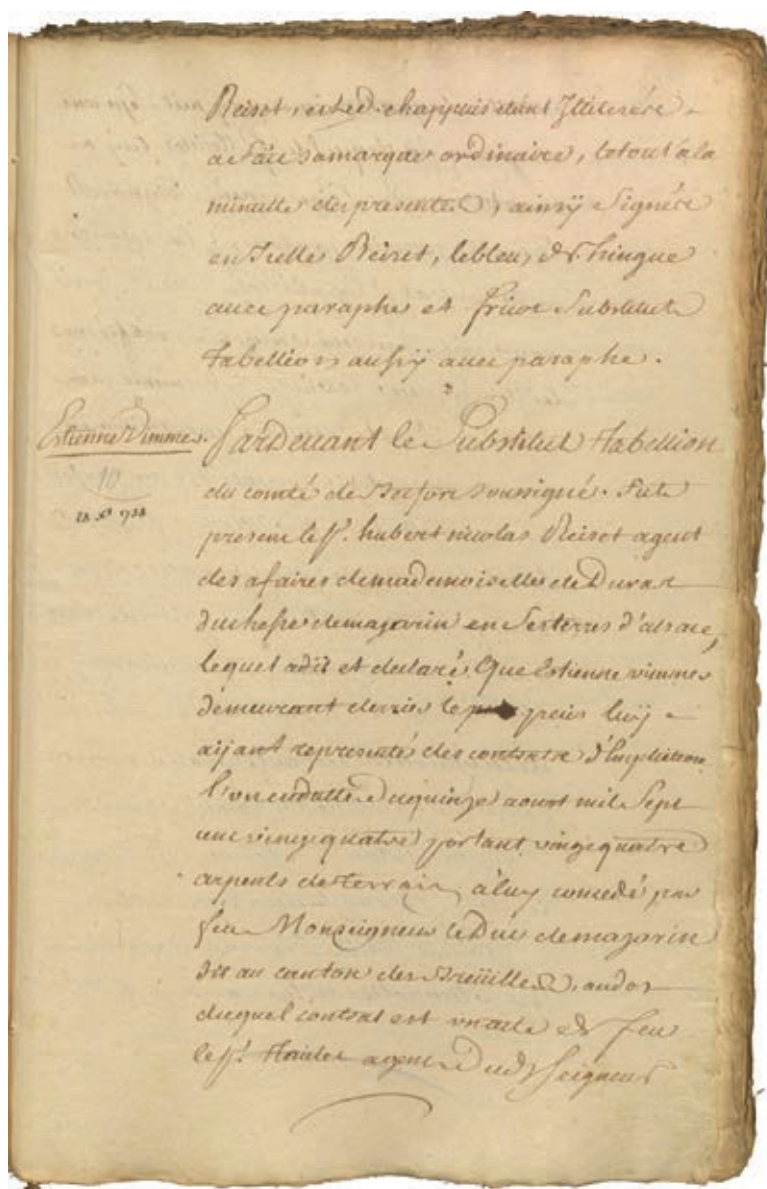 Reiset, et led. chappuis étant Illiterére
a faie sa marque ordinaire, le tout a la
minutte des presentes, ainsÿ Signére
en Icelle Reiset, lebleu,
avec paraphe et friot Substitut
Tabellion aussÿ avec paraphe.
Estienne Vimmes. Pardevant le Substitut Tabellion
10
du comté de Befort soussigné. fut
present le Sr. hubert nicolas Reiset agent
des afaires de mademoiselle de Duras
Duchesse de mazarin en Ses terres d'alsace,
lequel a dit et declaré, Que Estienne vimmes
demeurant derrier le puis luÿ
aÿant representé des contrats
l'un en datte du quinze aoust mil Sept
cent vingt quatre portant vingt quatre
arpents de terrain, a luy concedé par
feu Monseigneur le Duc de mazarin
dit au canton des, au dos
duquel contrat est un acte de feu
le Sr. agent Dud Seigneur